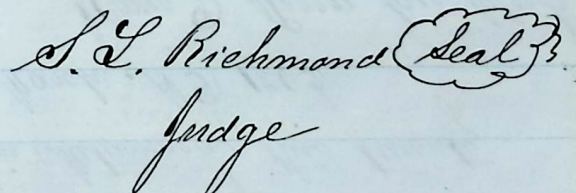 S. L. Richmond Seal
Judge